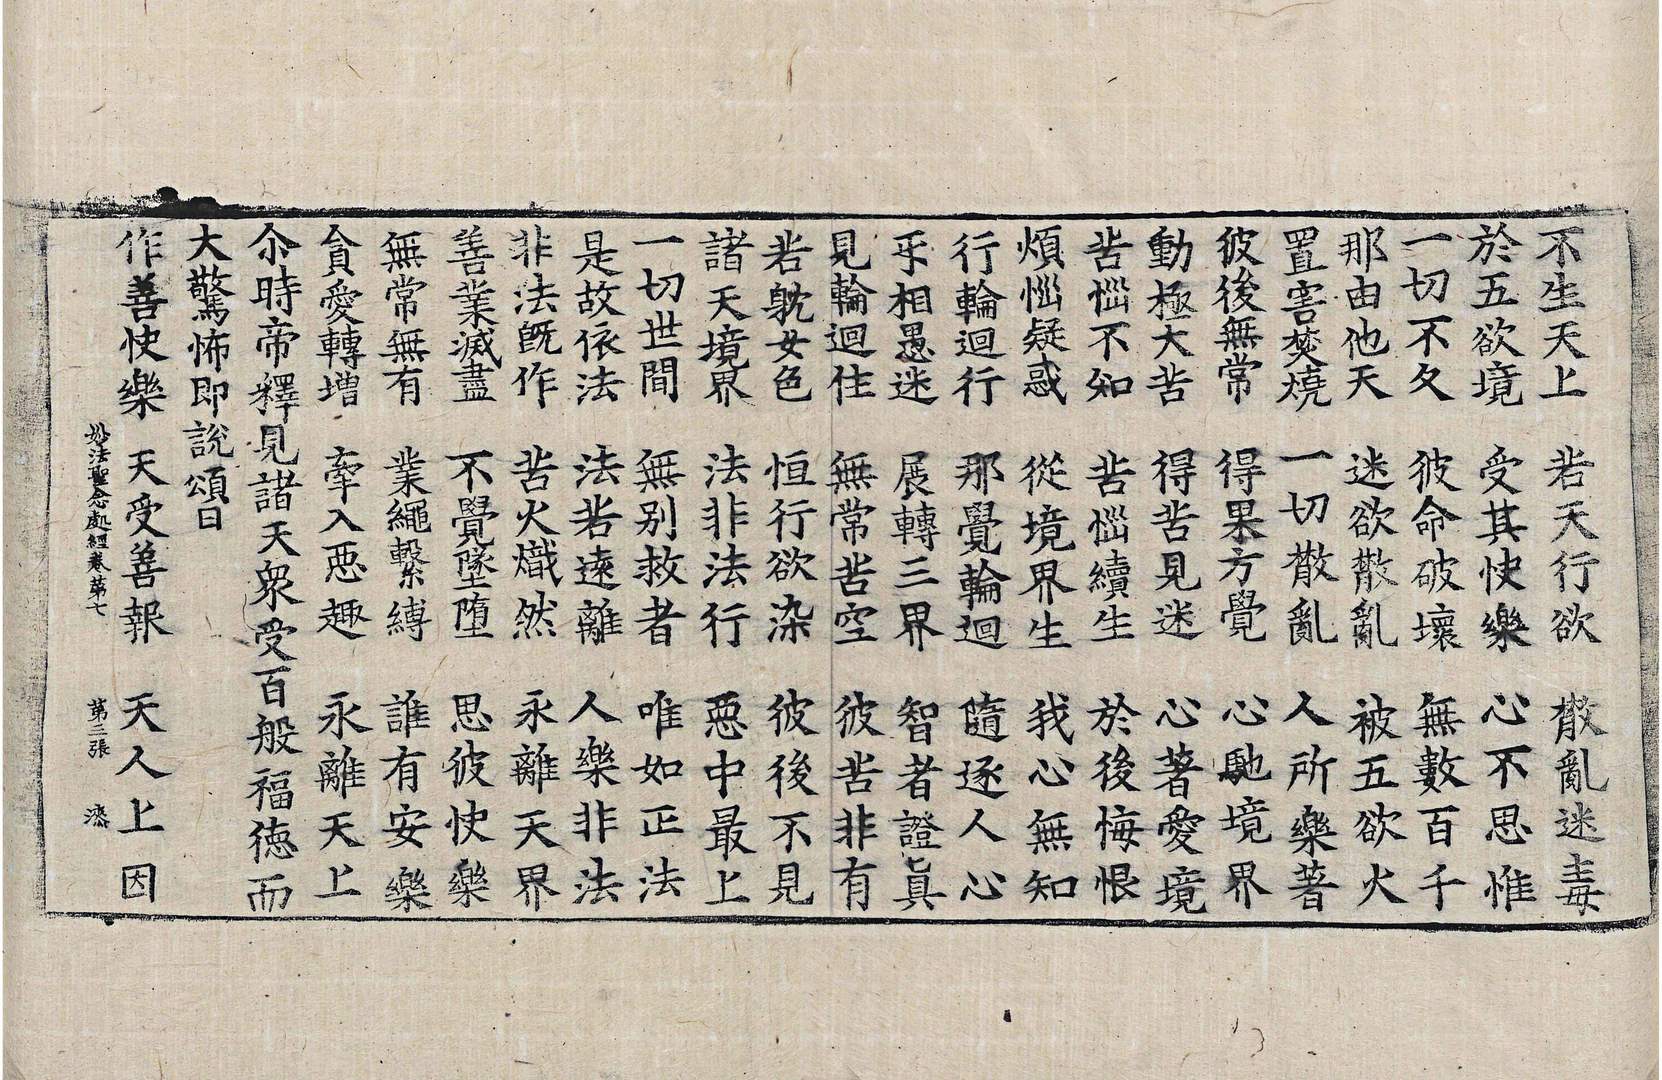 不生天上　若天行欲　散亂迷毒
於五欲境　受其快樂　心不思惟
一切不久　彼命破壞　無數百千
那由他天　迷欲散亂　被五欲火
置害焚燒　一切散亂　人所樂著
彼後無常　得果方覺　心馳境界
動極大苦　得苦見迷　心著愛境
苦惱不知　苦惱續生　於後悔恨
煩惱疑惑　從境界生　我心無知
行輪迴行　那覺輪迴　隨逐人心
乎相愚迷　展轉三界　智者證眞
見輪迴住　無常苦空　彼苦非有
若躭女色　恒行欲染　彼後不見
諸天境界　法非法行　惡中最上
一切世間　無別救者　唯如正法
是故依法　法若遠離　人樂非法
非法旣作　苦火熾然　永離天界
善業滅盡　不覺墜墮　思彼快樂
無常無有　業繩繫縛　誰有安樂
貪愛轉增　牽入惡趣　永離天上
尒時帝釋見諸天衆受百般福德而
大驚怖即說頌曰
作善快樂　天受善報　天人上因
妙法聖念處經卷第七　第三張　漆